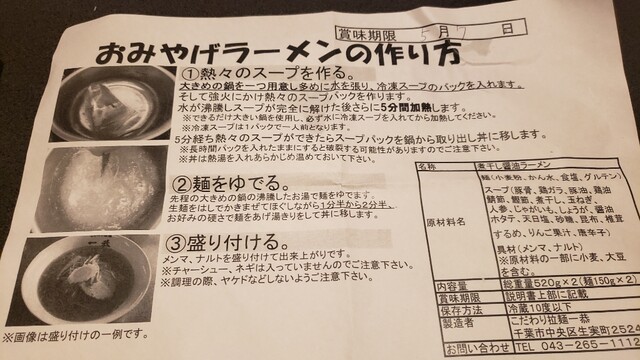 賞味期限 5月7日
おみやげラーメンの作り方
①熱々のスープを作る。
大きめの鍋を一つ用意し多めに水を張り、冷凍スープのパックを入れます。
そして強火にかけ熱々のスープパックを作ります。
水が沸騰しスープが完全に解けた後さらに5分間加熱します。
※できるだけ大きい鍋を使用し、必ず水に冷凍スープを入れてから加熱してください。
※冷凍スープは1パックで一人前となります。
5分経ち熱々のスープができたらスープパックを鍋から取り出し丼に移します。
※長時間パックを入れたままにすると破裂する可能性がありますのでご注意下さい。
※丼は熱湯を入れあらかじめ温めておいて下さい。
②麺をゆでる。
先程の大きめの鍋の沸騰したお湯で麺をゆでます。
生麺をはしでかきまぜてほぐしながら1分半から2分半、
お好みの硬さで麺をあげ湯きりをして丼に移します。
③盛り付ける。
メンマ、ナルトを盛り付けて出来上がりです。
※チャーシュー、ネギは入っていませんのでご注意下さい。
※調理の際、ヤケドなどしないようご注意下さい。
※画像は盛り付けの一例です。
名称 煮干し醤油ラーメン
原材料名
麺(小麦粉、かん水、食塩、グルテン)
スープ(豚骨、鶏ガラ、豚油、鶏油
鯖節、鰹節、煮干し、玉ねぎ、
人参、じゃがいも、しょうが、醤油
ホタテ、天日塩、砂糖、昆布、椎茸
するめ、りんご果汁、唐辛子)
具材(メンマ、ナルト)
※原材料の一部に小麦、大豆
を含む。
内容量 総重量520g×2(麺150g×2)
賞味期限 説明書上部に記載
保存方法 冷蔵10度以下
製造者 こだわり拉麺一恭
千葉市中央区生実町2524
お問い合わせ TEL 043-265-1112